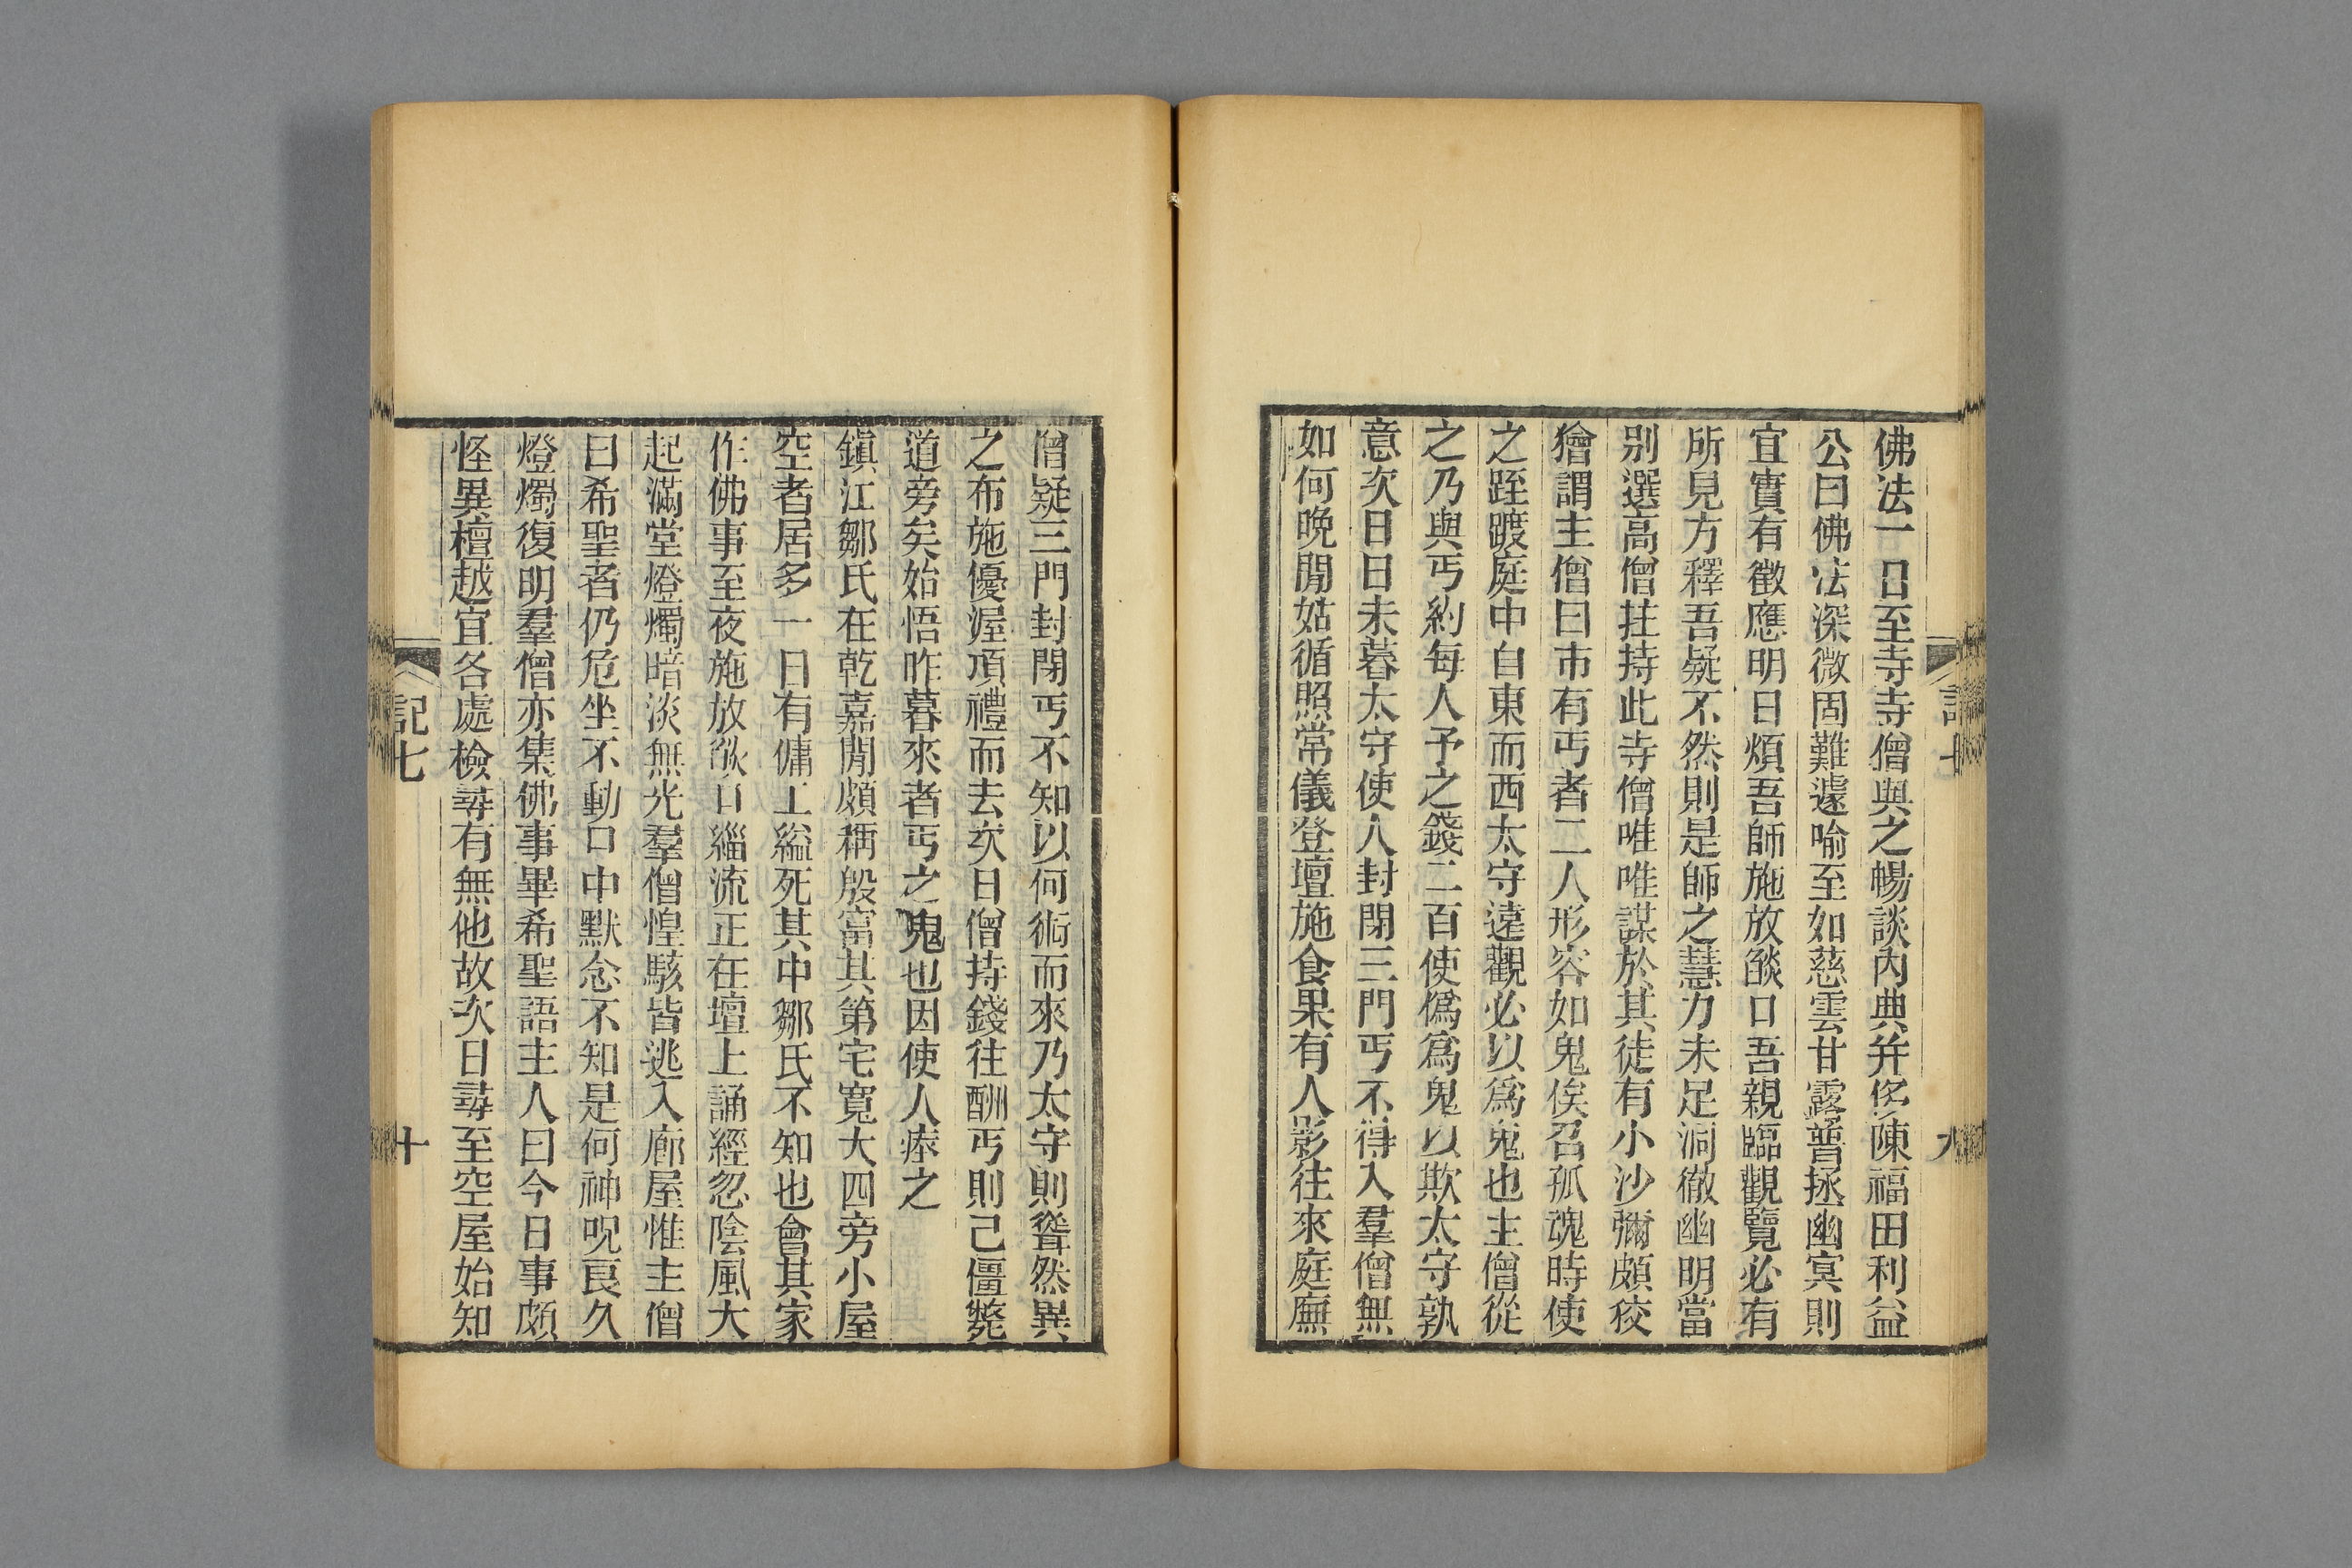 佛法一日至寺寺僧與之暢談內典并侈陳福田利益
公曰佛法深微固難遽喻至如慈雲甘露普拯幽冥則
宜實有徵應明日煩吾師施放燄口吾親臨觀覽必有
所見方釋吾疑不然則是師之慧力未足洞徹幽明當
別選高僧拄持此寺僧唯唯謀於其徒有小沙彌頗狡
獪謂主僧曰市有丐者二人形容如鬼俟召孤魂時使
之踁踱庭中自東而西太守遠觀必以爲鬼也主僧從
之乃與丐約每人予之錢二百使僞爲鬼以欺太守孰
意次日日未暮太守使人封閉三門丐不得入羣僧無
如何晚閒姑循照常儀登壇施食果有人影往來庭廡
九
僧疑三門封閉丐不知以何術而來乃太守則聳然異
之布施優渥頂禮而去次日僧持錢往酬丐則已僵斃
道旁矣始悟昨暮來者丐之鬼也因使人瘞之
鎭江鄒氏在乾嘉閒頗稱殷富其第宅寬大四旁小屋
空者居多一日有傭工縊死其中鄒氏不知也會其家
作佛事至夜施放燄口緇流正在壇上誦經忽陰風大
起滿堂燈燭暗淡無光羣僧惶駭皆逃入廊屋惟主僧
曰希聖者仍危坐不動口中默念不知是何神呪良久
燈燭復明羣僧亦集佛事畢希聖語主人曰今日事頗
怪異檀越宜各處檢尋有無他故次日尋至空屋始知
記七
十